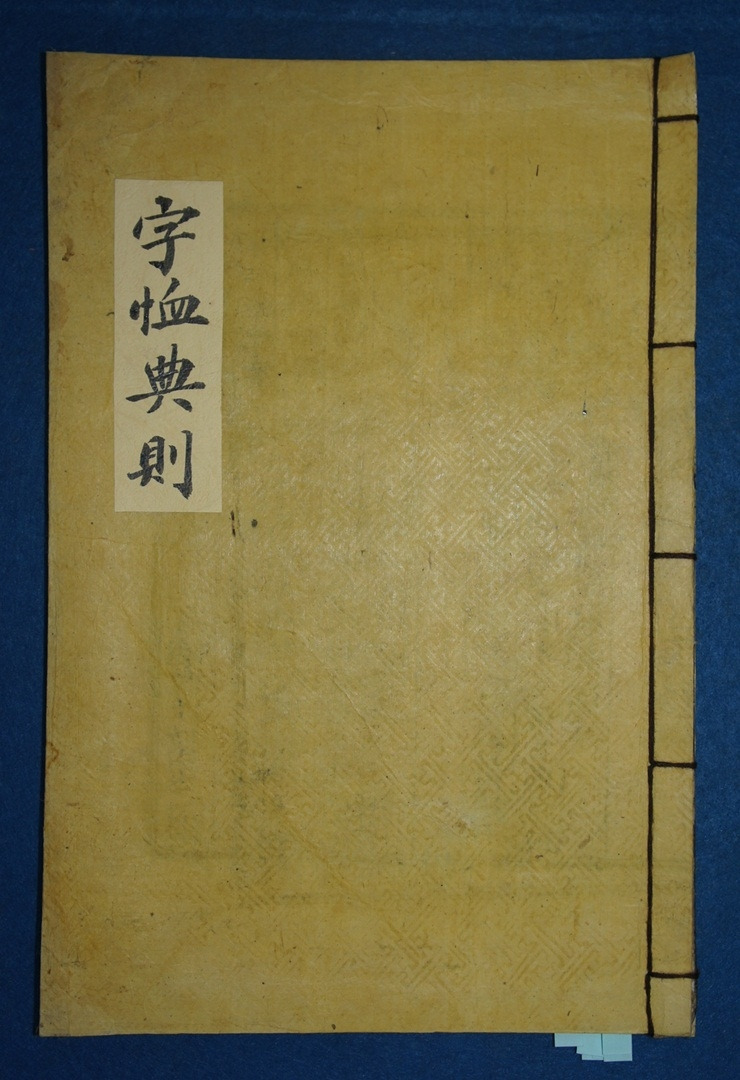 字恤典則